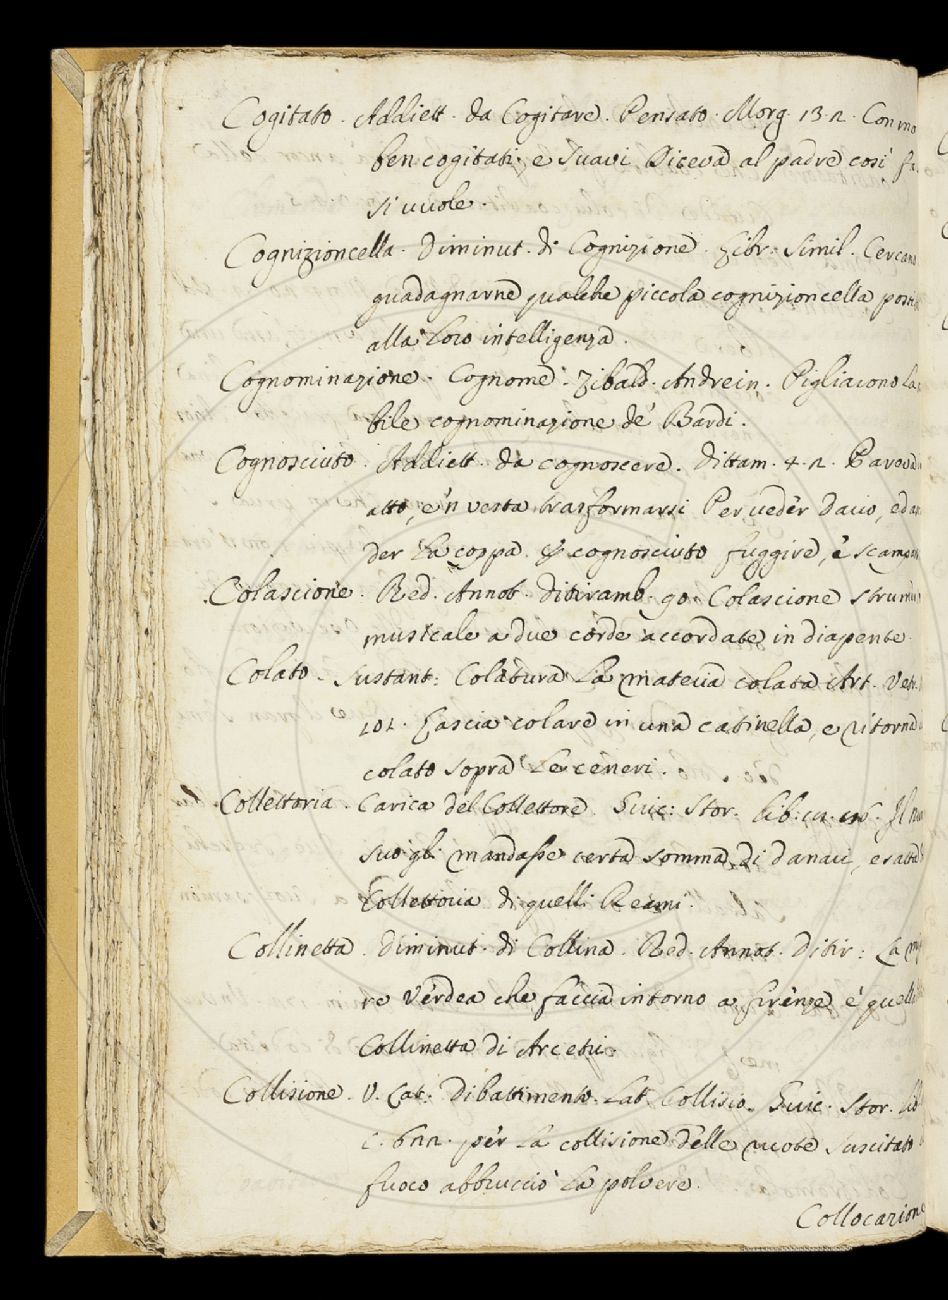 Cogitato. Addiett. da Cogitare. Pensato. Morg. 13. 2. Con mo
ben cogitati, e suavi Diceva al padre così
si vuole.
Cognizioncella. Diminut. di Cognizione. Zibr: Simil. Cercano
guadagnarne qualche piccola cognizioncella
alla loro intelligenza.
Cognominazione. Cognome. Zibald. Andrein. Pigliarono la
bile cognominazione de' Bardi.
Cognosciuto. Addiett. da cognoscere. Dittam. 4. 2.
atto, e 'n vesta trasformarsi Per veder Davo, ed
der la coppa. cognosciuto fuggire, e scampa
Colascione. Red. Annot. Ditiramb. 90. Colascione strum
musicale a due corde accordate in diapente.
Colato. Sustant: Colatura La materia colata Art. Vetr.
101. Lascia colare in una catinella, e ritorna
colato sopra le ceneri.
Collettoria. Carica del Collettore. Guic: Stor. lib: Il
suo gli mandasse certa somma di danari,
Collettoria di quelli Reami.
Collinetta. Diminut. di Collina. Red. Annot. Ditir: La
re Verdea che faccia intorno a Firenze, è quell
Collinetta di Arcetri.
Collisione. V. Lat. Dibattimento. Lat. Collisio. Guic. Stor. lib
c. 622. per la collisione delle ruote suscitato
fuoco abbruciò la polvere.
Collocazione